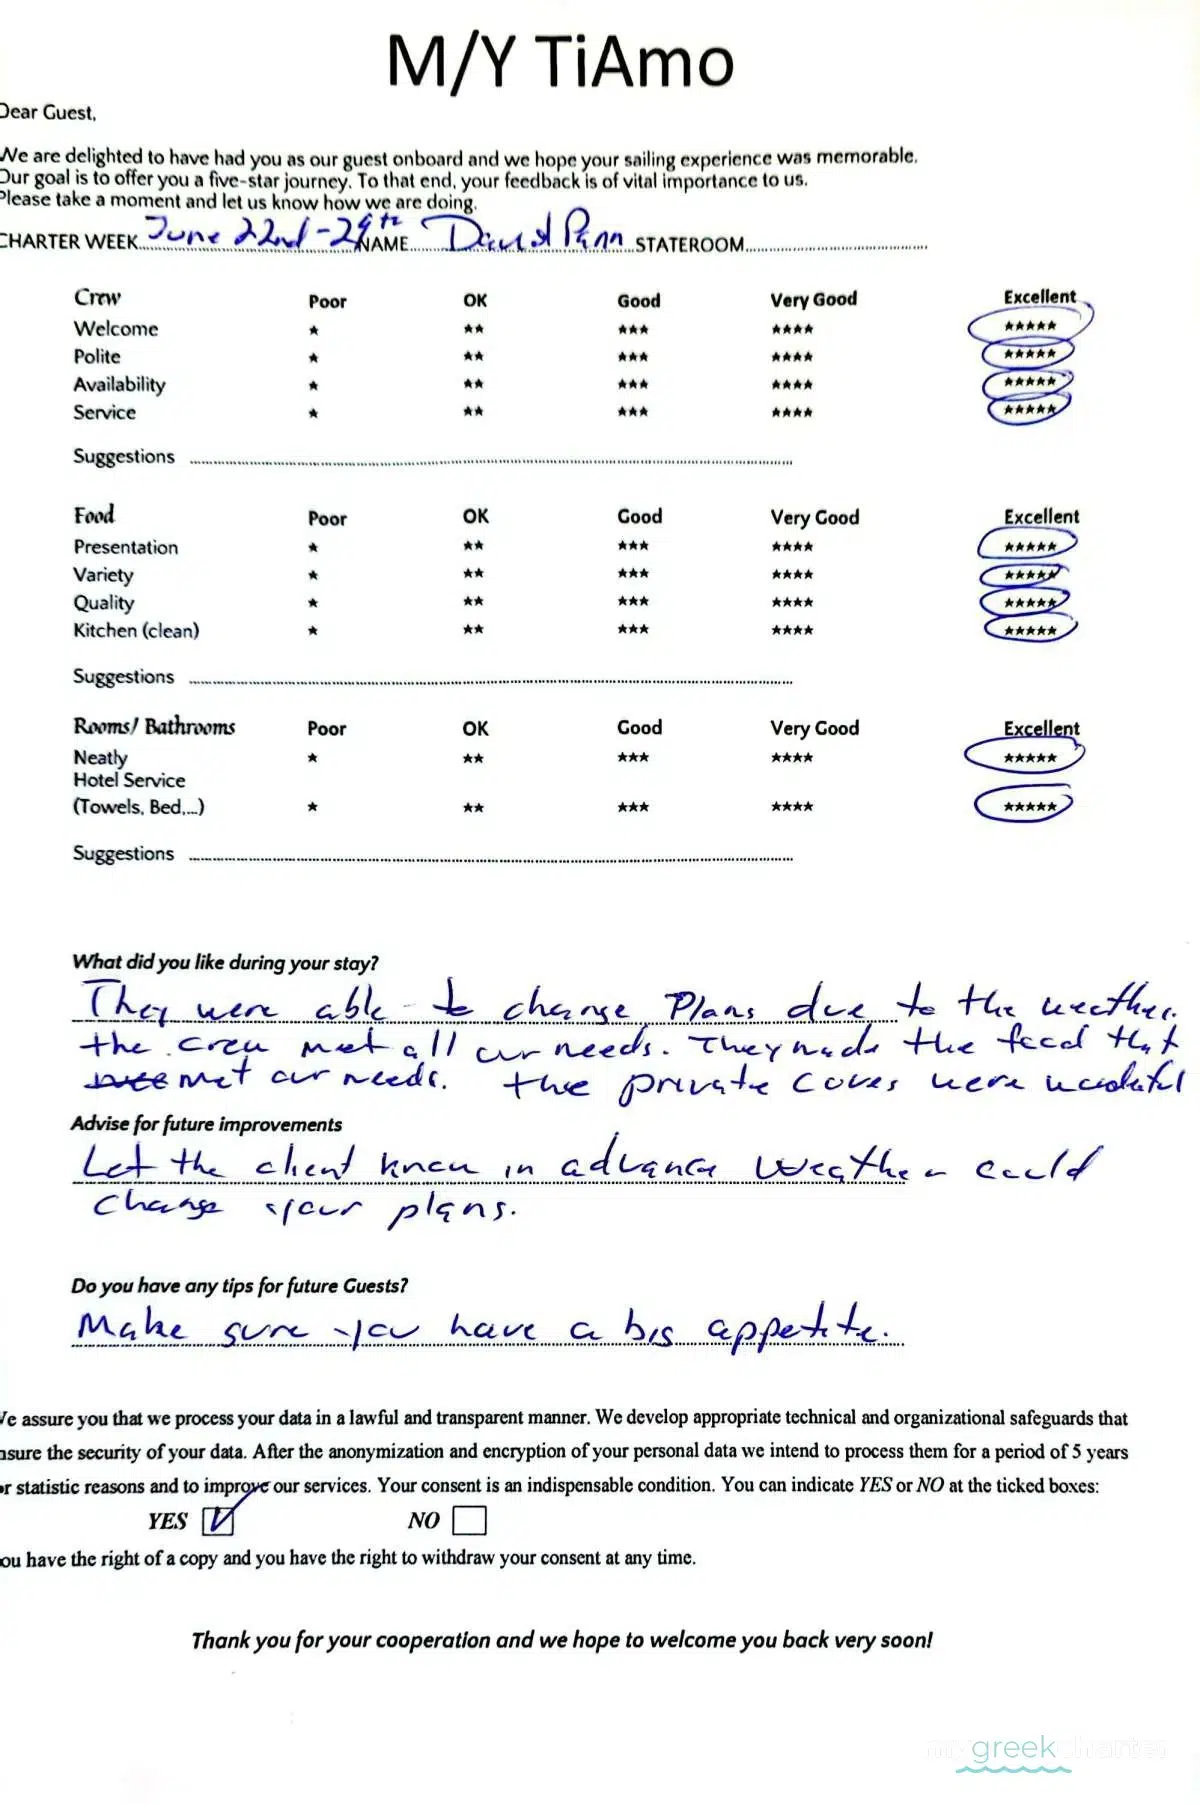 M/Y TiAmo
Dear Guest,
We are delighted to have had you as our guest onboard and we hope your sailing experience was memorable.
Our goal is to offer you a five-star journey. To that end, your feedback is of vital importance to us.
Please take a moment and let us know how we are doing.
CHARTER WEEK June 22nd - 29th NAME David STATEROOM
Crew Poor OK Good Very Good Excellent
Welcome ★ ★★ ★★★ ★★★★ ★★★★★
Polite ★ ★★ ★★★ ★★★★ ★★★★★
Availability ★ ★★ ★★★ ★★★★ ★★★★★
Service ★ ★★ ★★★ ★★★★ ★★★★★
Suggestions
Food Poor OK Good Very Good Excellent
Presentation ★ ★★ ★★★ ★★★★ ★★★★★
Variety ★ ★★ ★★★ ★★★★ ★★★★★
Quality ★ ★★ ★★★ ★★★★ ★★★★★
Kitchen (clean) ★ ★★ ★★★ ★★★★ ★★★★★
Suggestions
Rooms/ Bathrooms Poor OK Good Very Good Excellent
Neatly ★ ★★ ★★★ ★★★★ ★★★★★
Hotel Service
(Towels, Bed,...) ★ ★★ ★★★ ★★★★ ★★★★★
Suggestions
What did you like during your stay?
They were able to change Plans due to the weather.
the crew met all our needs. They made the food that
met our needs. the private coves were wonderful
Advise for future improvements
Let the client know in advance weather could
change your plans.
Do you have any tips for future Guests?
Make sure you have a big appetite.
We assure you that we process your data in a lawful and transparent manner. We develop appropriate technical and organizational safeguards that
ensure the security of your data. After the anonymization and encryption of your personal data we intend to process them for a period of 5 years
for statistic reasons and to improve our services. Your consent is an indispensable condition. You can indicate YES or NO at the ticked boxes:
YES NO
You have the right of a copy and you have the right to withdraw your consent at any time.
Thank you for your cooperation and we hope to welcome you back very soon!
my greek charter